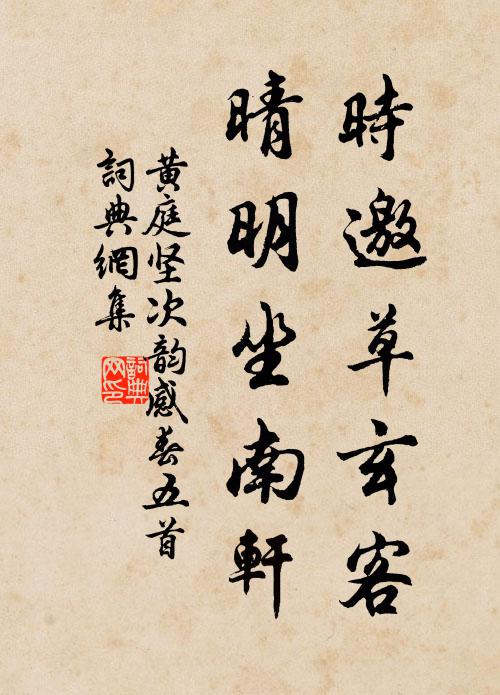 時邀草玄客
晴明坐南軒
黄庭坚次韵感春五首
詞典網集
詞典网印